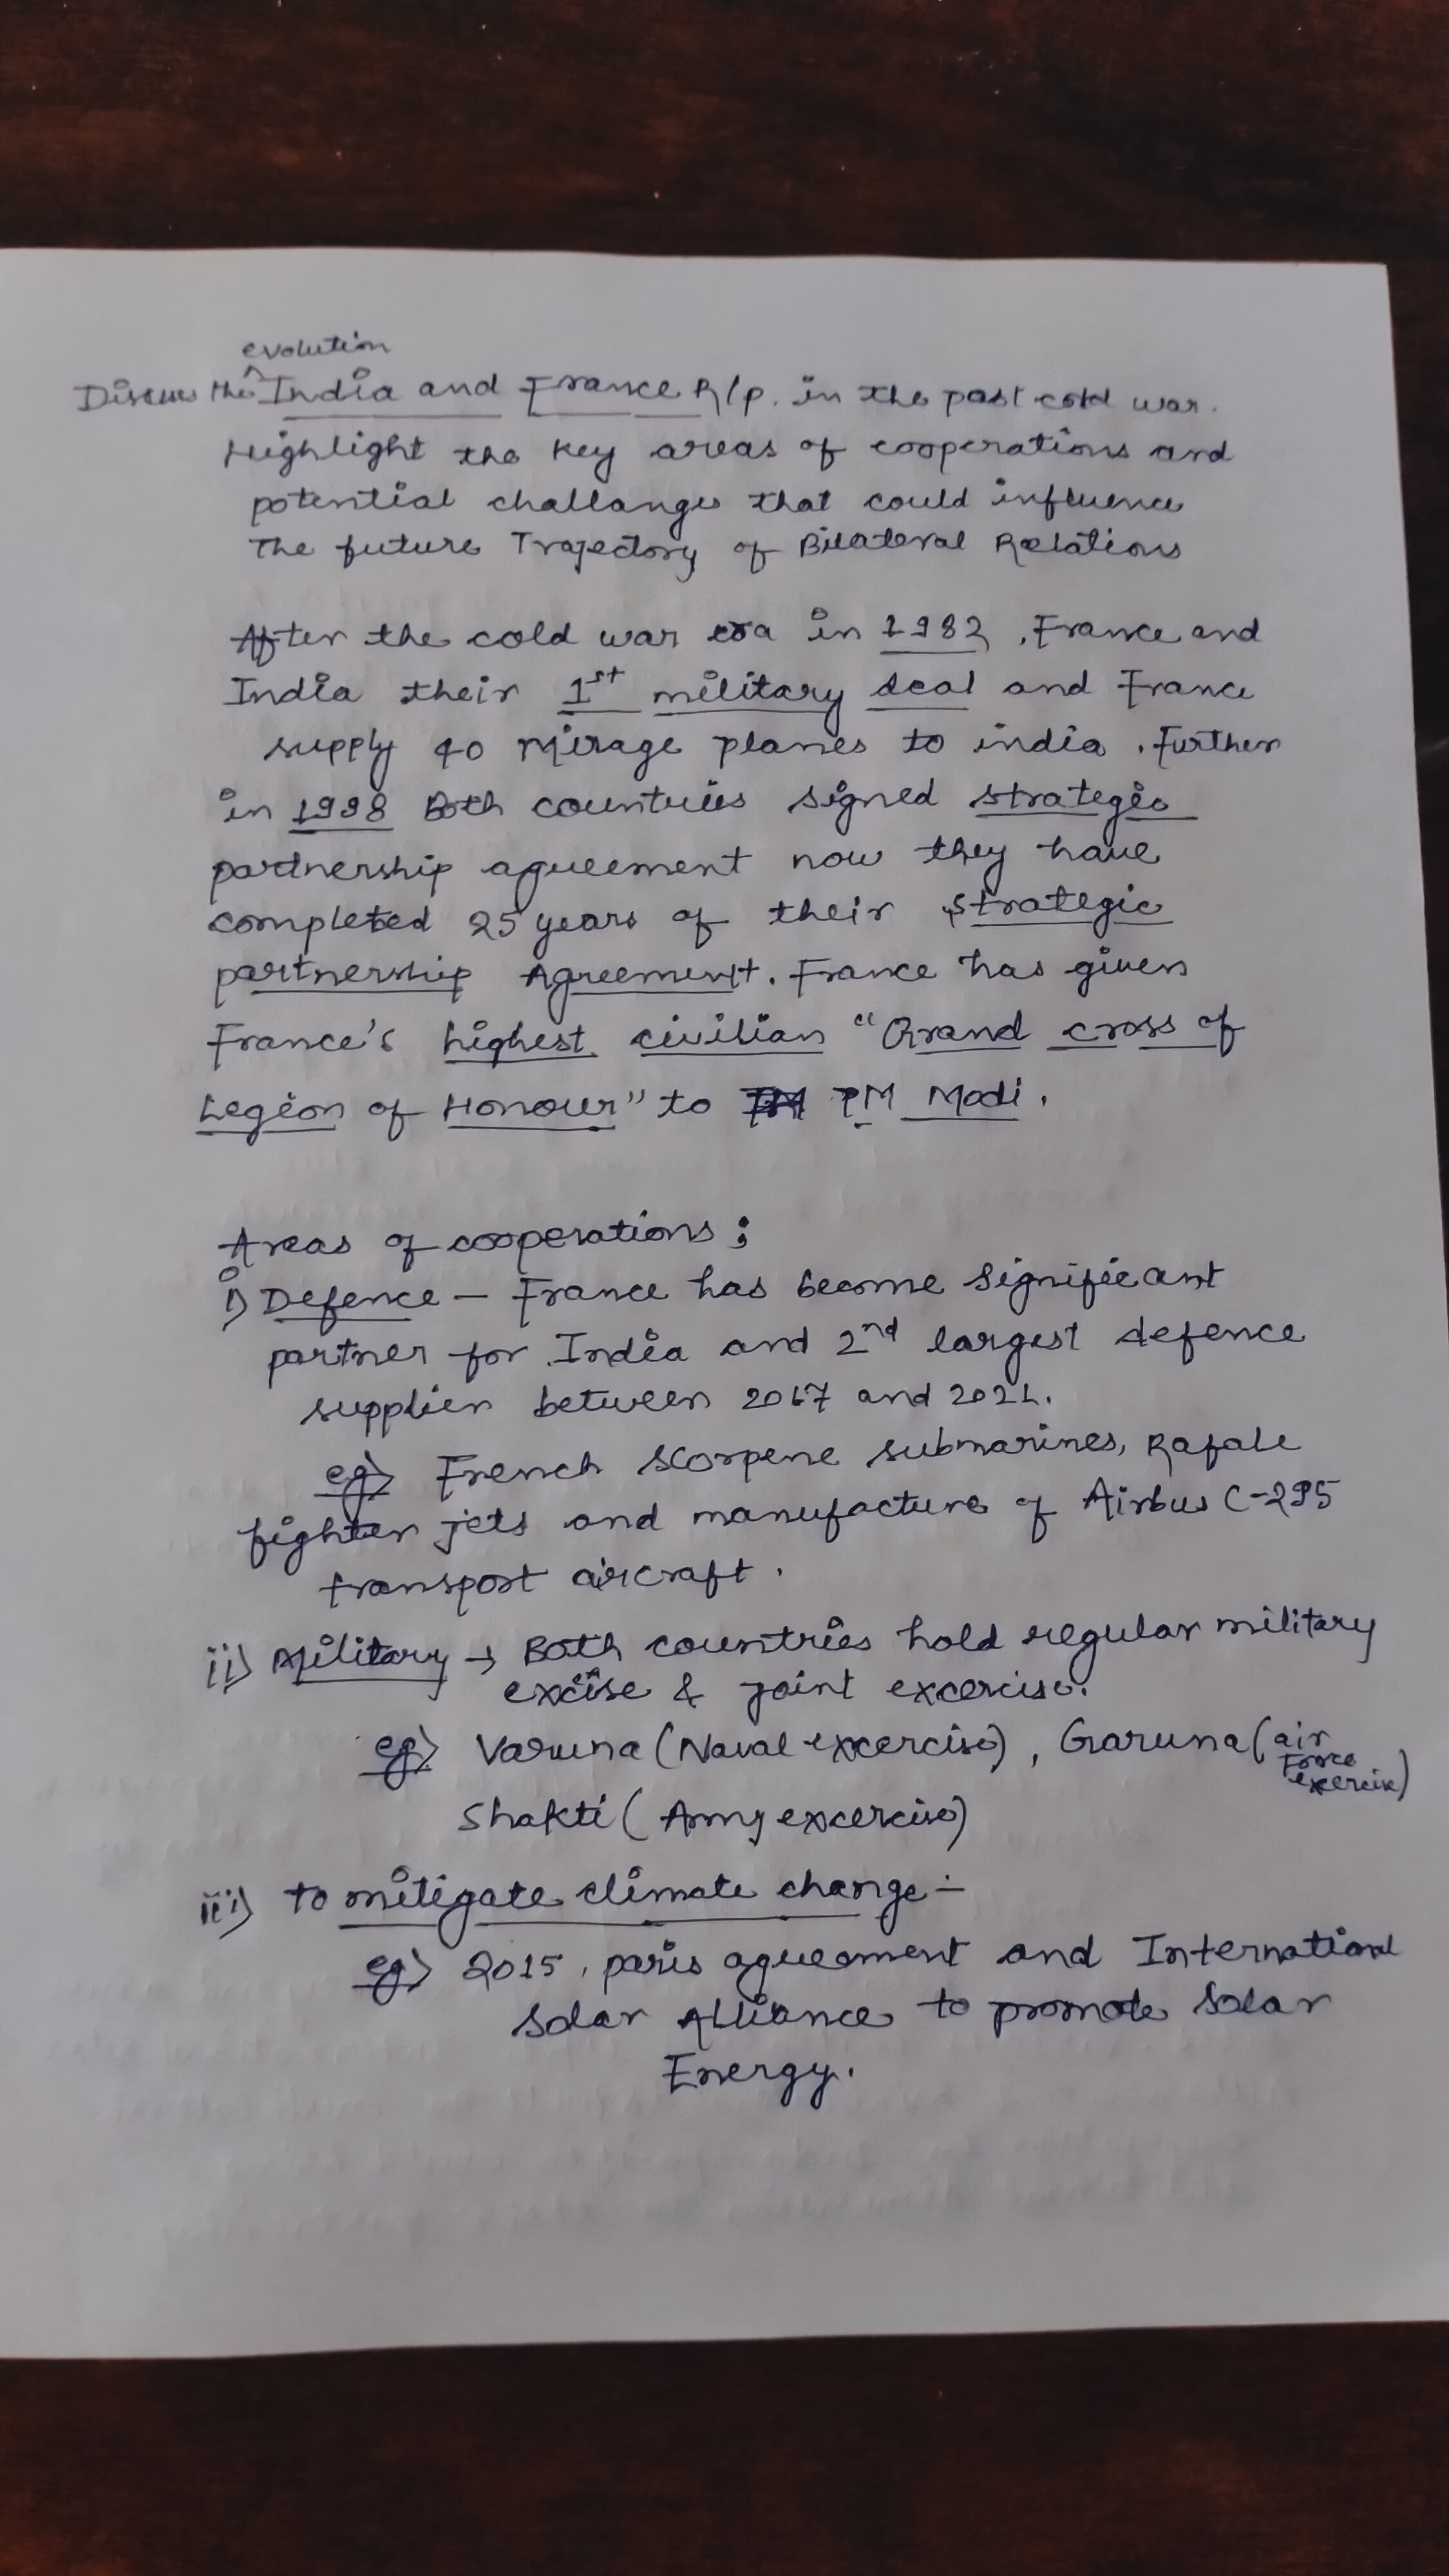 evolution
Discuss the India and France R/p. in the past cold war.
Highlight the key areas of cooperations and
potential challanges that could influence
The future Trajectory of Bilateral Relations
After the cold war era in 1982, France and
India their 1st military deal and France
supply 40 Mirage planes to india. Further
in 1998 Both countries signed strategic
partnership agreement now they have
completed 25 years of their strategic
partnership Agreement. France has given
France's highest civilian "Grand cross of
Legion of Honour" to PM Modi.
Areas of cooperations;
i) Defence - France has become significant
partner for India and 2nd largest defence
supplier between 2017 and 2021.
eg> French Scorpene submarines, Rafale
fighter jets and manufacture of Airbus C-295
transport aircraft.
ii) Military → Both countries hold regular military
excise & joint excercise.
eg> Varuna (Naval excercise), Garuna (air
Force
exercise)
Shakti (Army excercise)
iii) to mitigate climate change -
eg> 2015, paris agreement and International
Solar Alliance to promote Solar
Energy.